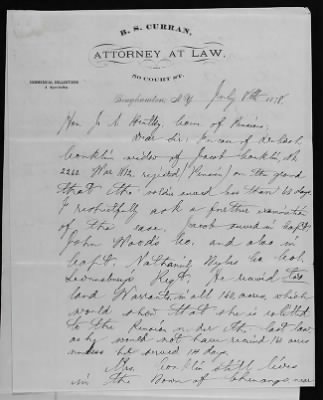 B. S. CURRAN,
ATTORNEY AT LAW,
80 COURT ST.
COMMERCIAL COLLECTIONS
A Specialty.
Binghamton, N.Y. July 8th 1878.
Hon. J. A. Bentley, Com. of Pensions,
Dear Sir:
Conklin widow of Jacob Conklin, No
2222 War 1812, rejected (Pension) on the ground
that the soldier served less than 60 days.
I respectfully ask a further examination
of the case. Jacob served in Capt.
John Woods Co. and also in
Capt. Nathaniel Co. Col.
Regt. He received two
land Warrants, in all 160 acres, which
would show that she is entitled
to the Pension under the last law
as he would not have received 160 acres
unless he served 14 days.
Mrs. Conklin still lives
in the Town of Chenango, near